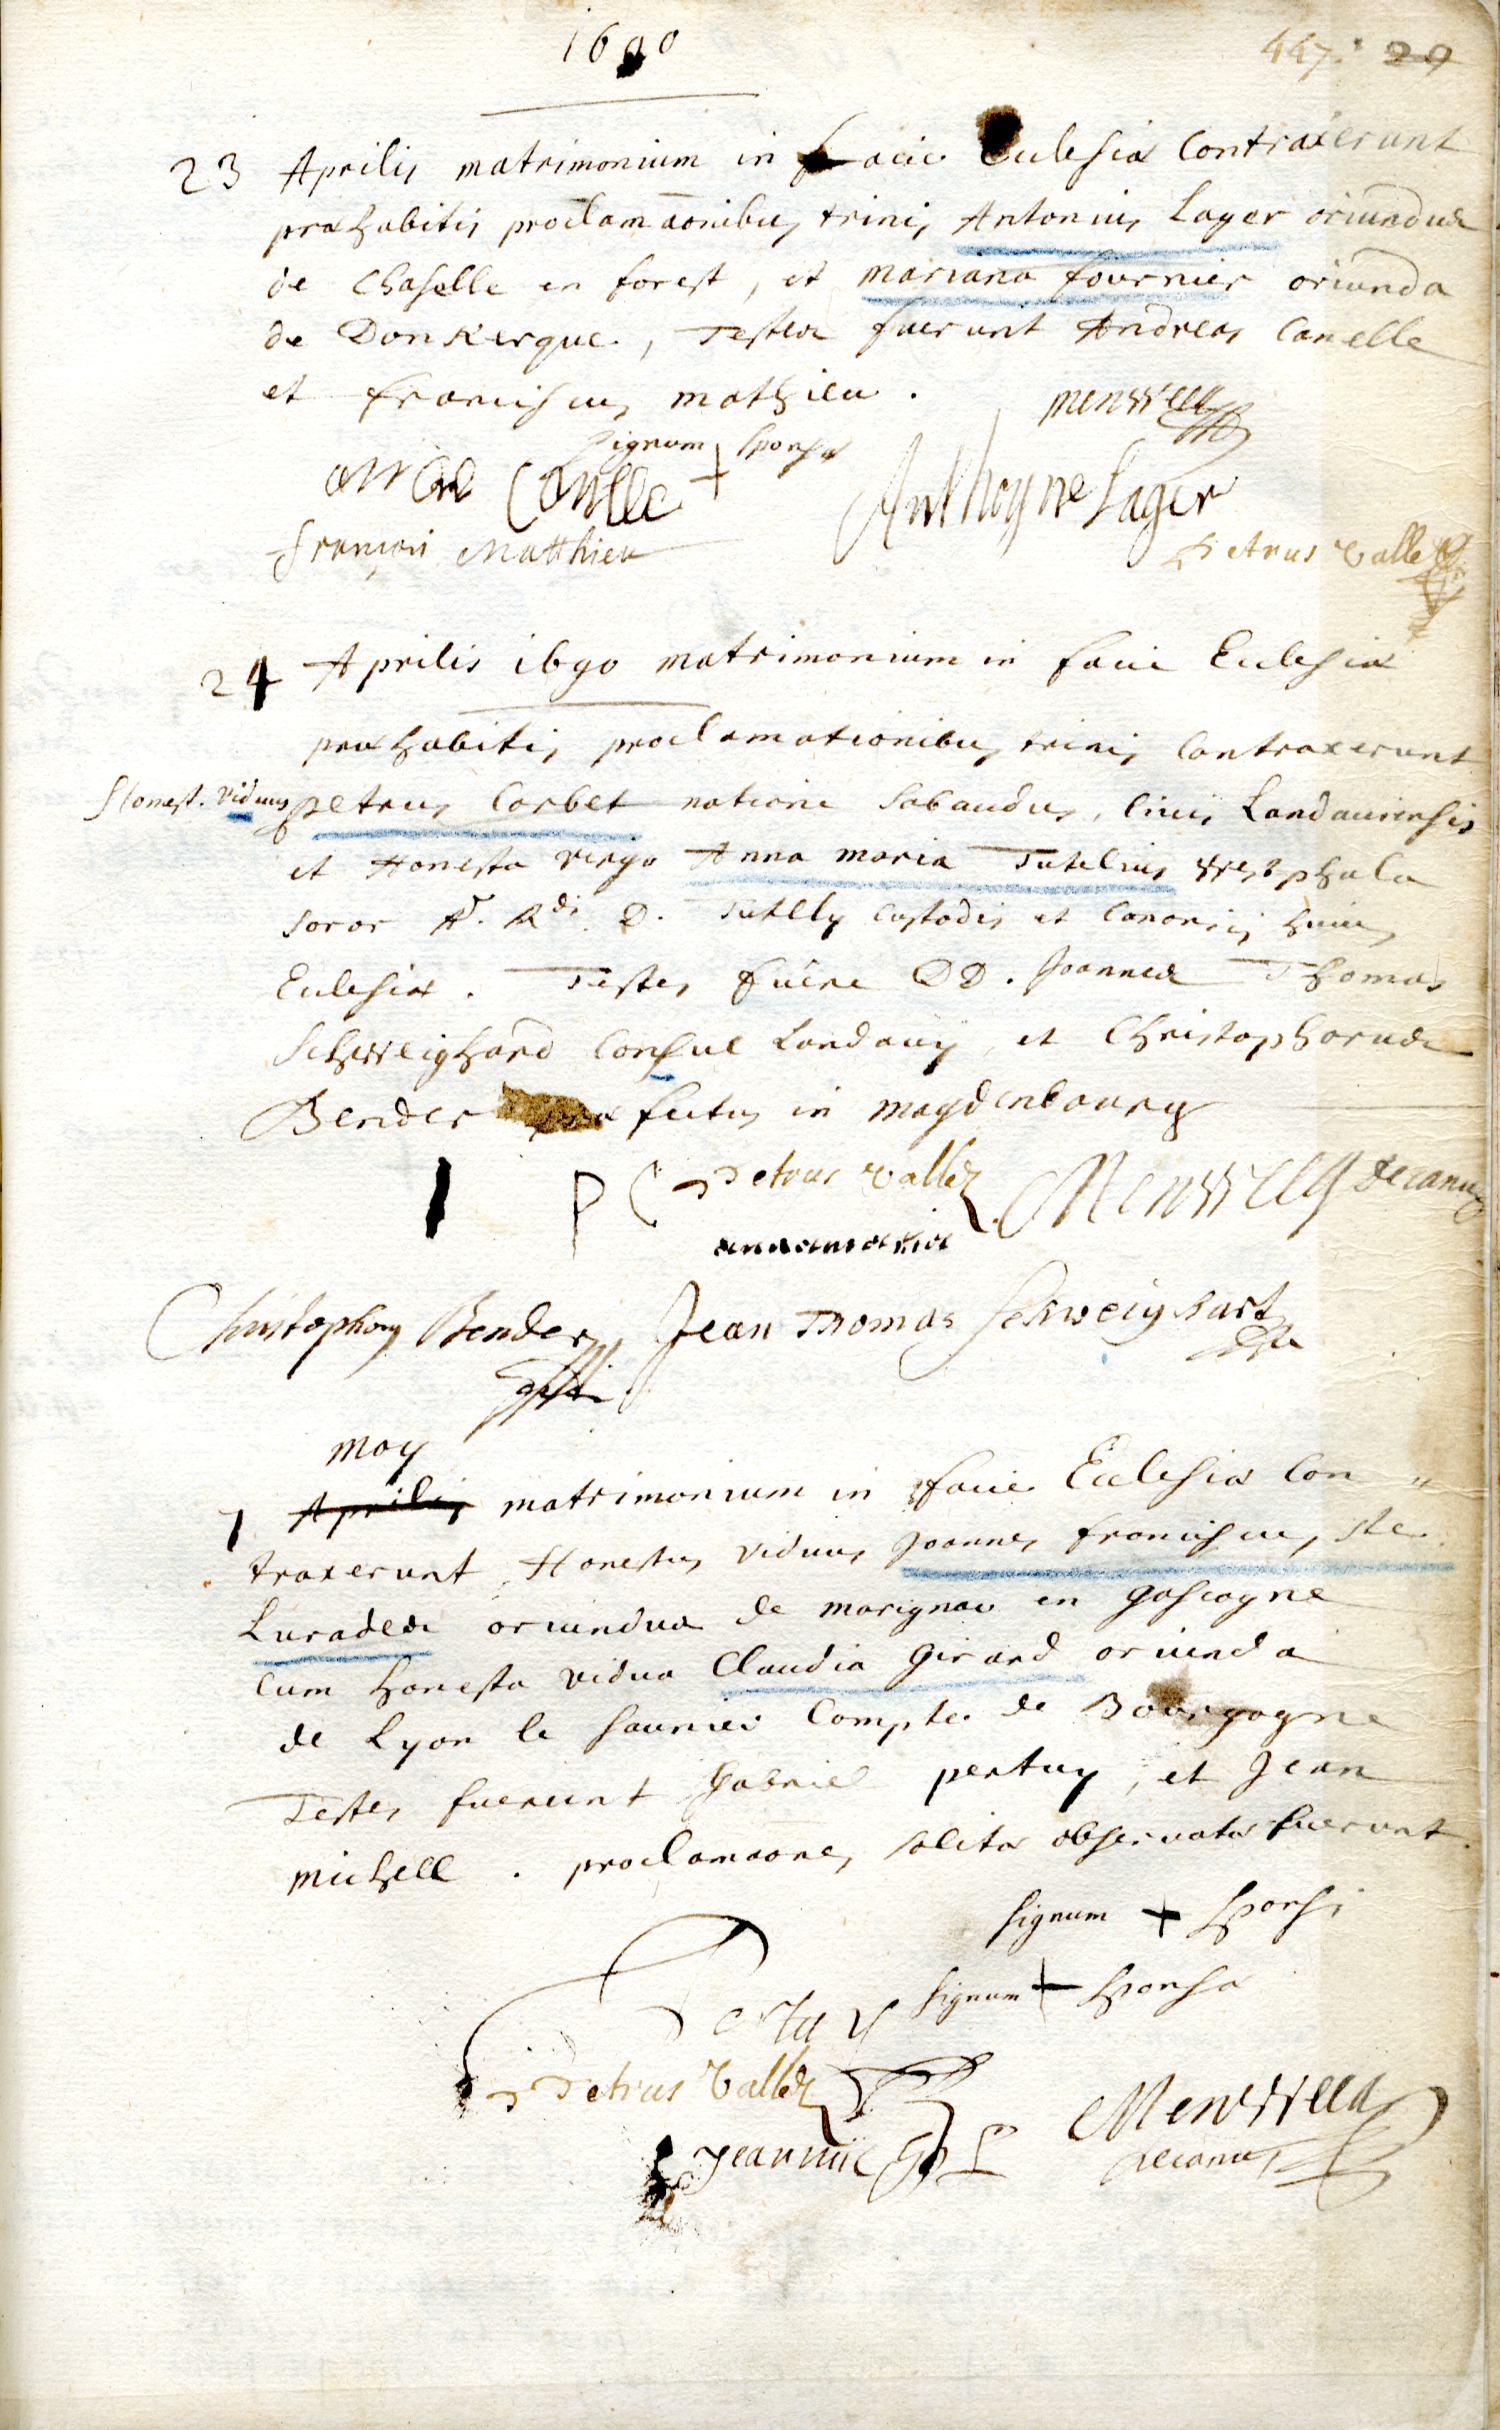 1690
447. 29
23 Aprilis matrimonium in facie Eclesiæ Contraxerunt
præhabitis proclamaõnibus trinis Antonius Lager oriundus
de Chaselle en forest, et mariana fournier oriunda
de Donkerque, Testes fuerunt Andreas Canelle
et franciscus mathieu.
Menweeg
signum + sponsæ
Canelle
Anthoyne Lager
françois Matthieu
Petrus Vallez
24 Aprilis 1690 matrimonium in facie Eclesiæ
præhabitis proclamationibus trinis Contraxerunt
Honest. viduus petrus Corbet natione Sabaudus, Civis Landauiensis
et Honesta virgo Anna maria Tutelius westphala
soror A.r R.di D. Tutelly Custodis et Canonici huius
Eclesiæ. Testes fuêre DD. Joannes Thomas
Schweighard Consul Landauÿ, et Christophorus
Bender præfectus in magdenbourg
P C Petrus Vallez Menweeg decanus
annamaria
Christophorus Bender Jean Thomas Schweighart
may
7 Aprilis matrimonium in facie Eclesiæ Con
traxerunt Honestus viduus Joannes franciscus, ste
Lurades oriundus de marignac en gascogne
Cum honesta vidua Claudia girard oriunda
de Lyon le saunier Compte de Bourgogne
Testes fuerunt gabriel pertuy, et Jean
michell. proclamaõnes solitæ obseruatæ fuerunt.
signum + sponsi
signum + sponsæ
Pertuy
Petrus Vallez
Menweeg
decanus
Jean mic